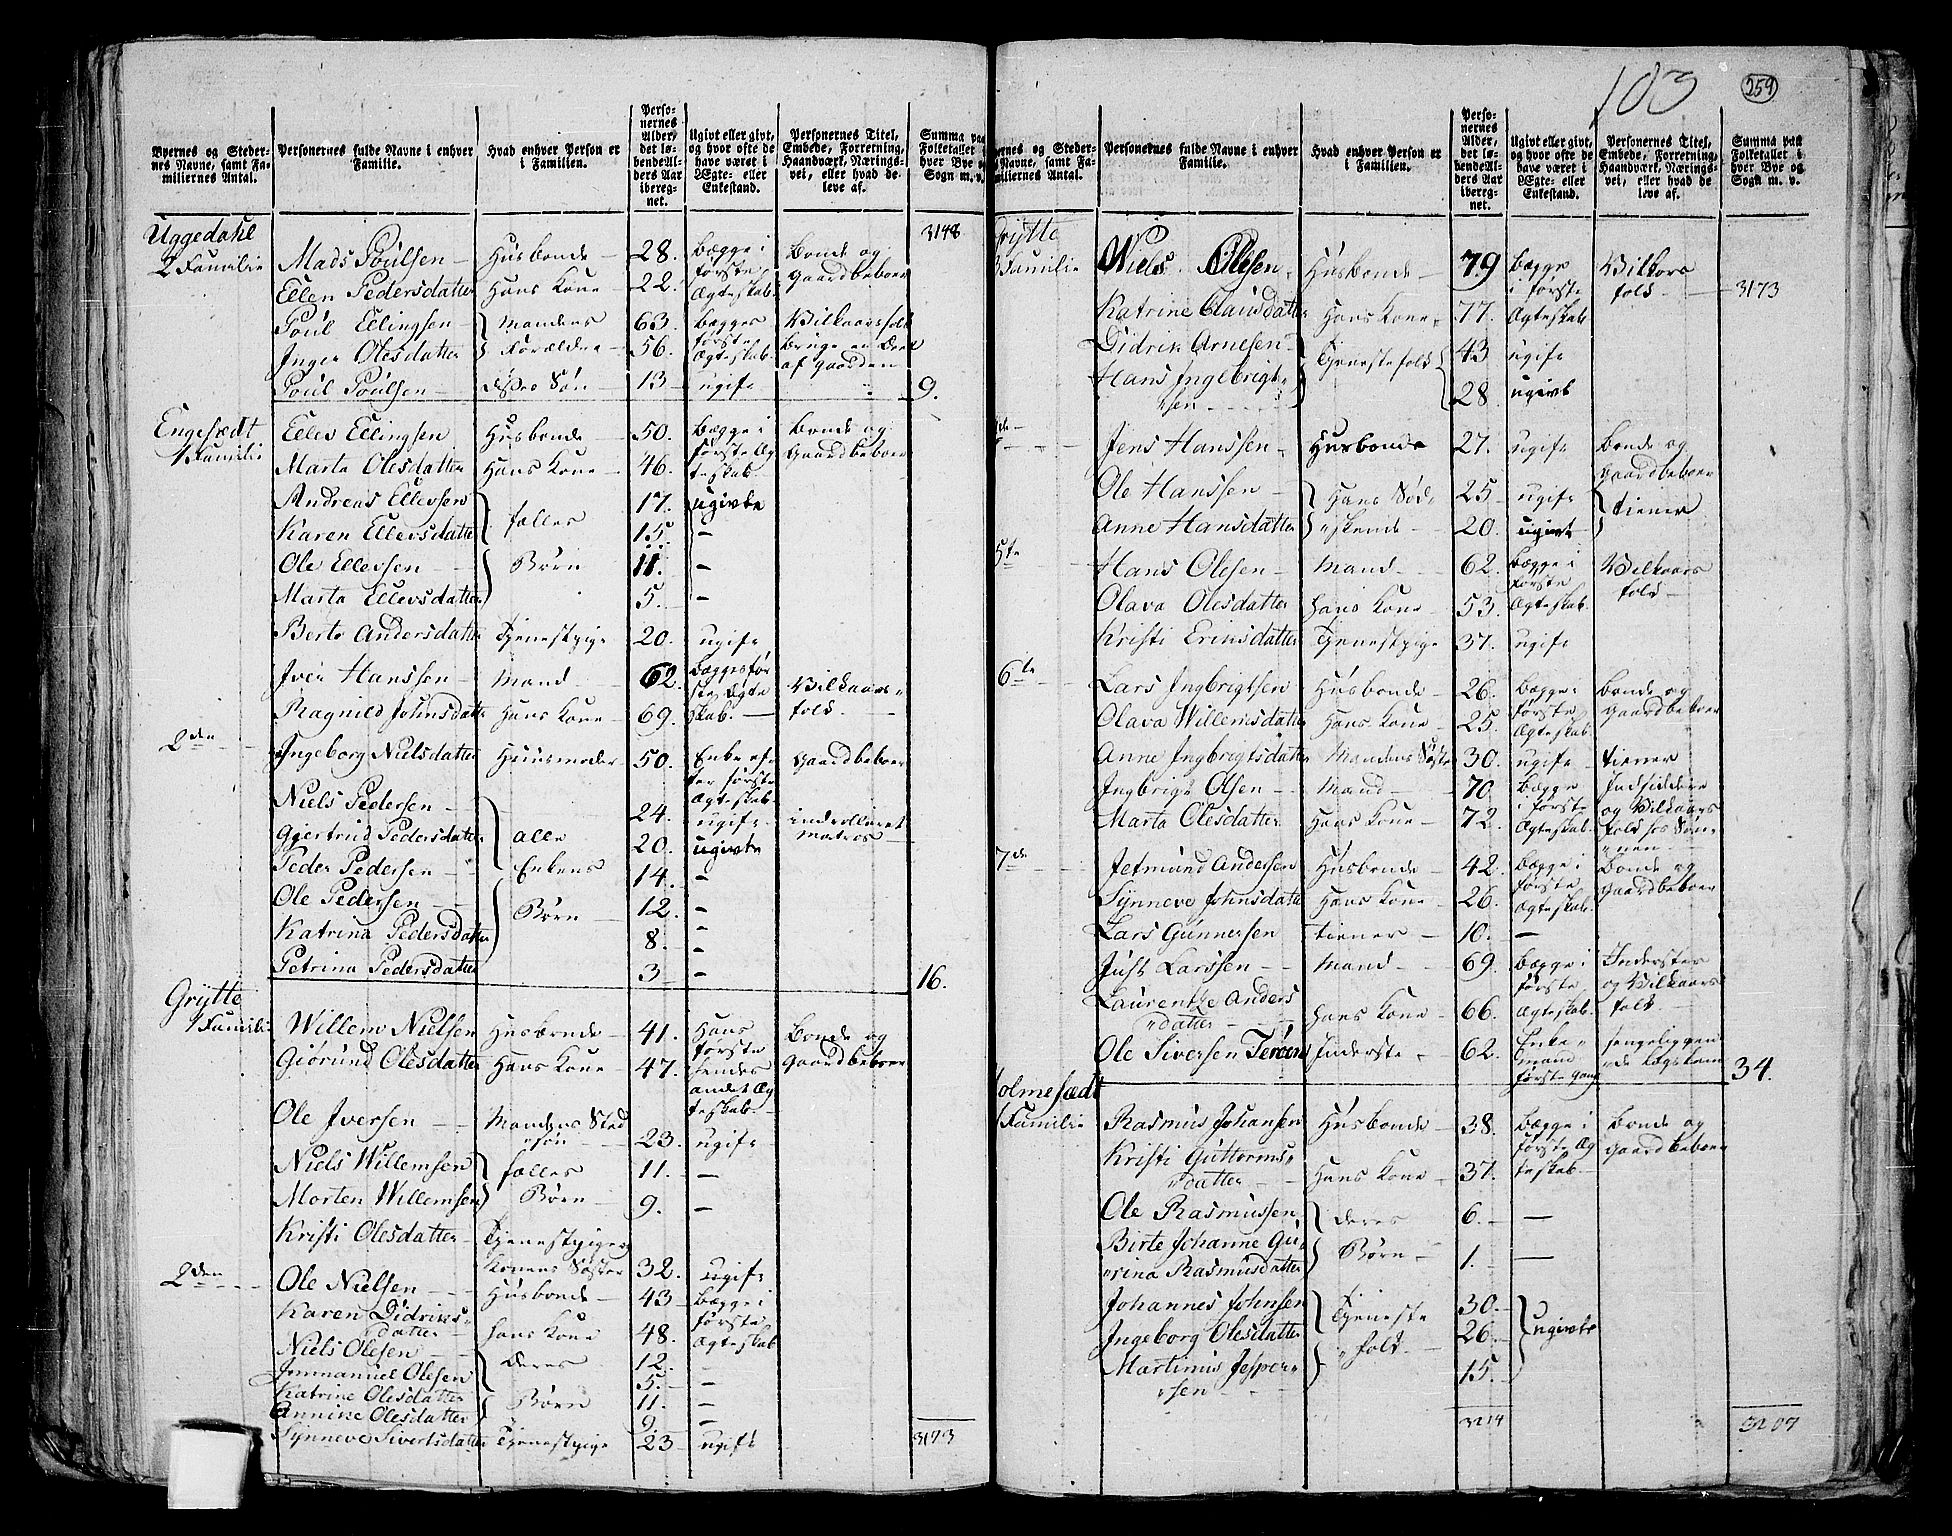 103
259
Byernes og Stedernes Navne, samt Familiernes Antal.
Personernes fulde Navne i enhver Familie.
Hvad enhver Person er i Familien.
Personernes Alder, det løbende Alders Aar iberegnet.
Ugivt eller givt, og hvor ofte de have været i Ægte- eller Enkestand.
Personernes Titel, Embede, Forretning, Haandværk, Næringsvei, eller hvad de leve af.
Summa paa Folketallet i hver Bye og Sogn m. v.
Uggedahl 3148
2 Familie Mads Poulsen – Husbonde – 28. Bægge i første Ægteskab. Bonde og Gaardbeboer
Ellen Pedersdatter Hans Kone – 22.
Poul Ellingsen – Mandens 63. Bægges første Ægteskab. Vilkaarsfolk Bruge en Deel af Gaarden
Inger Olesdatter Forældre – 56.
Poul Poulsen – Søn – 13 – ugift 9.
Engesædt
1 Familie Ellev Ellingsen Husbonde – 50. Bægge i Første Ægteskab Bonde og Gaardbeboer
Marta Olesdatter Hans Kone – 46.
Andreas Ellevsen fælles 17. ugivte
Karen Ellevsdatter 15. –
Ole Ellevsen – Børn 11. –
Marta Ellevsdatter 5. –
Berte Andersdatter Tjenestpige 20. ugift
Iver Hanssen – Mand – 62. Bægges første Ægteskab. – Vilkaarsfolk. –
Ragnild Johnsdatter Hans Kone – 69.
2den Ingeborg Nielsdatter Huusmoder 50. Enke efter første Ægteskab. Gaardbeboer
Niels Pedersen – alle Enkens Børn 24. ugift inrolleret Matros –
Gjertrud Pedersdatter 20. ugivte
Peder Pedersen – 14. –
Ole Pedersen – 12. –
Katrina Pedersdatter 8. –
Petrina Pedersdatter 3 – – 16.
Grytte
1 Familie Willem Nielsen Husbonde – 41. Hans første Hendes andet Ægteskab – Bonde og Gaardbeboer
Giørund Olesdatter Hans Kone – 47.
Ole Iversen – – Mandens Stedsøn – 23. ugift
Niels Willemsen fælles 11. –
Morten Willemsen Børn – 9. –
Kristi Olesdatter – Tjenestpige og Konens Søster 32. ugift
2den Ole Nielsen – – Husbonde – 43 – Bægge i første Ægteskab
Karen Didriksdatter – Hans Kone 48.
Niels Olesen – – Deres 12. –
Immanuel Olesen 5. –
Katrine Olesdatter Børn 11. –
Annike Olesdatter 9. –
Synneve Sivertsdatter Tjenestpige 23 – ugift 3173
Grytte
3 Familie Niels Olesen – Husbonde – 79 Bægge i første Ægteskab Vilkorsfolk – 3173
Katrine Clausdatter Hans Kone – 77.
Didrik Arnesen Tjenestefolk 43 ugift
Hans Ingebrigtsen – 28. ugivt
Jens Hanssen – Husbonde 27. ugift Bonde og Gaardbeboer
Ole Hanssen – Hans Sødskende – 25 – ugift tiener
Anne Hansdatter 20. ugivt
5te Hans Olesen – Mand – 62. Bægge i første Ægteskab. Vilkaarsfolk –
Olava Olesdatter Hans Kone – 53.
Kristi Eriksdatter Tjenestpige 37. ugift
6te Lars Ingbrigtsen Husbonde – 26. Bægge i første Ægteskab Bonde og Gaardbeboer
Olava Willemsdatter Hans Kone – 25.
Anne Ingbrigtsdatter Mandens Søster 30. ugift – tiener
Ingbrigt Olsen – Mand – 70. Bægge i første Ægteskab. Indsiddere og Vilkaarsfolk hos Sønnen –
Marta Olesdatter Hans Kone – 72.
7de Jetmund Andersen Husbonde – 42. Bægge i første Ægteskab. Bonde og Gaardbeboer
Synneve Johnsdatter Hans Kone – 26.
Lars Gunnersen tiener – 10. –
Just Larssen – – Mand – 69. Bægge i første Ægteskab. Inderster og Vilkaarsfolk –
Laurentze Andersdatter – Hans Kone – 66.
Ole Siversen Inderste – 62. Enkemand første Gang sengeliggende 34.
Holmesædt
1 Familie Rasmus Johansen Husbonde – 38. Bægge i første Ægteskab – Bonde og Gaardbeboer
Kristi Guttormsdatter – Hans Kone – 37.
Ole Rasmussen Deres 6. – –
Birte Johanne Gurina Rasmusdatter Børn – 1. – –
Johannes Johnsen Tjenestefolk – 30. – ugivte
Ingeborg Olesdatter 26. –
Martinus Jespersen – 15. –
3214 3207